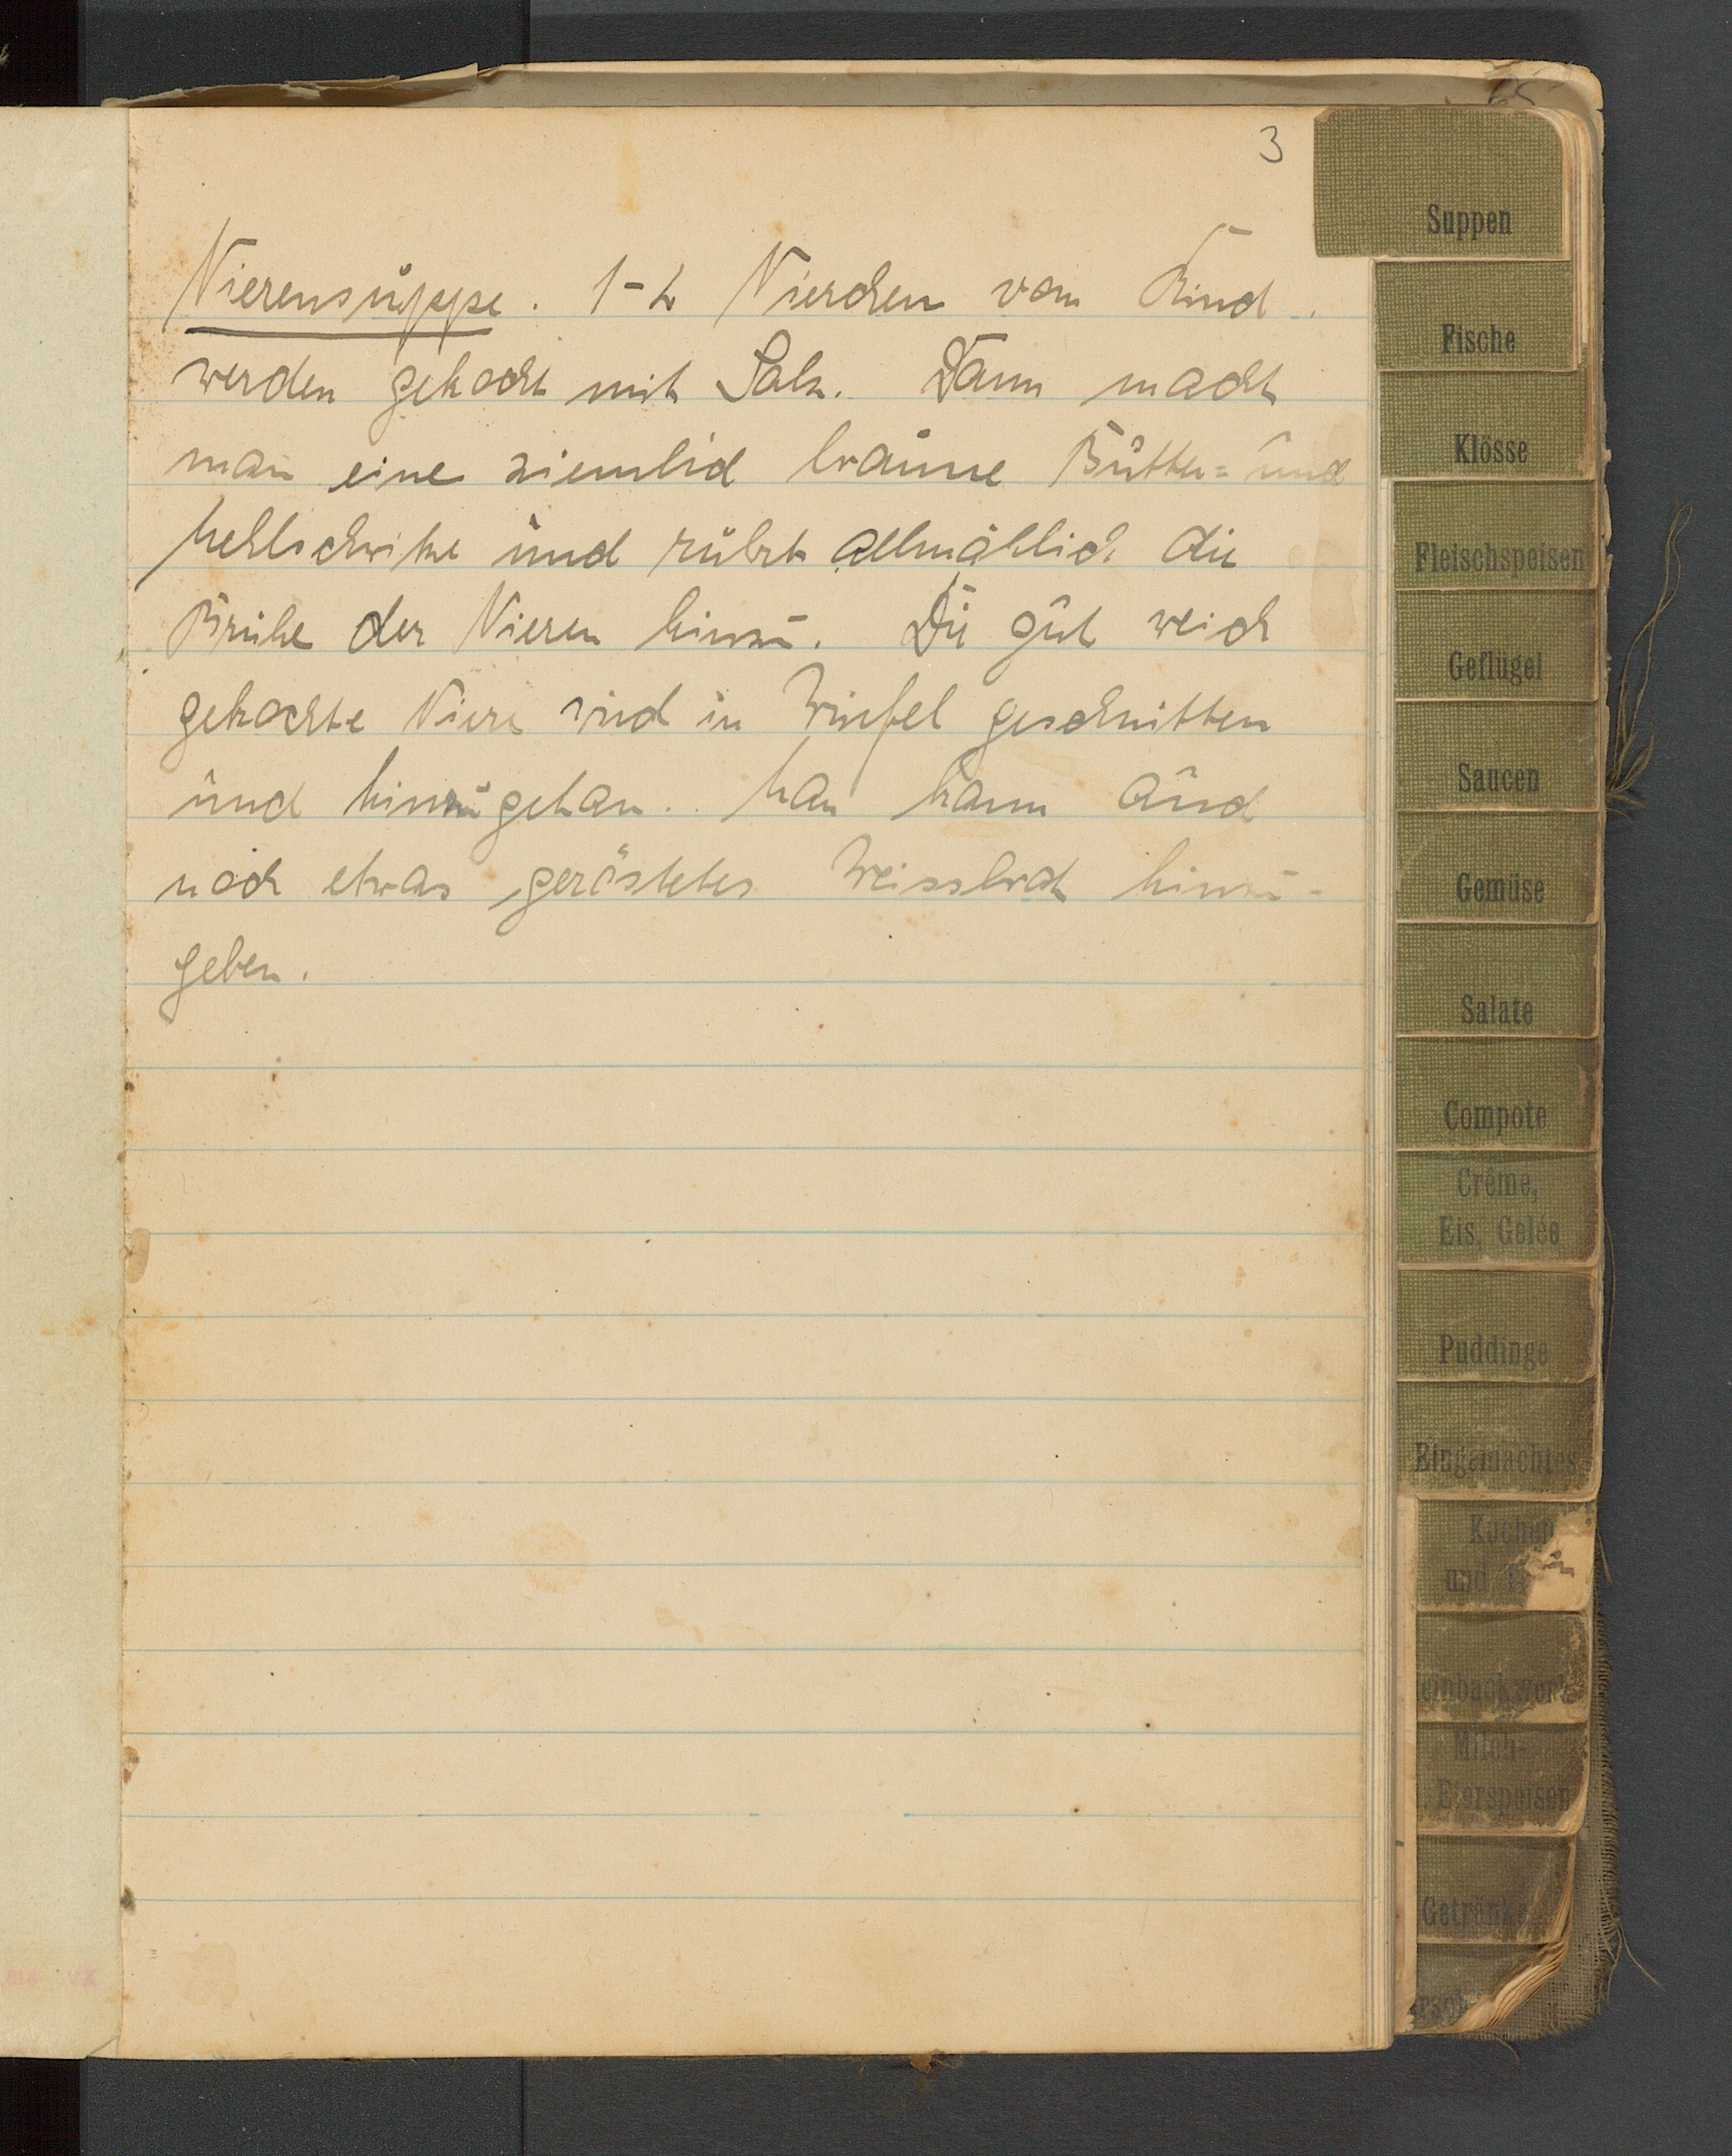 3
Nierensuppe. 1-2 Nierchen vom Rind.
werden gekocht mit Salz. Dann macht
man eine ziemlich braune Butter= und
Mehlschwitze und rührt allmählich die
Brühe der Nieren hinzu. Die gut weich
gekochte Niere wird in Würfel geschnitten
und hinzugetan. Man kann auch
noch etwas geröstetes Weissbrot hinzu-
geben.
Suppen
Fische
Klösse
Fleischspeisen
Geflügel
Saucen
Gemüse
Salate
Compote
Crême,
Eis, Gelée
Puddinge
Eingemachtes
Kuchen
und
Milch-
Eierspeisen
Getränke